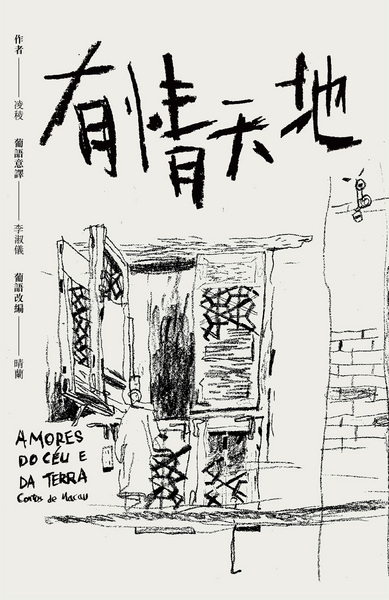 有情天地
作者——凌稜 葡語意譯——李淑儀 葡語改編——晴蘭
AMORES
DO CÉU E
DA TERRA
Contos de Macau